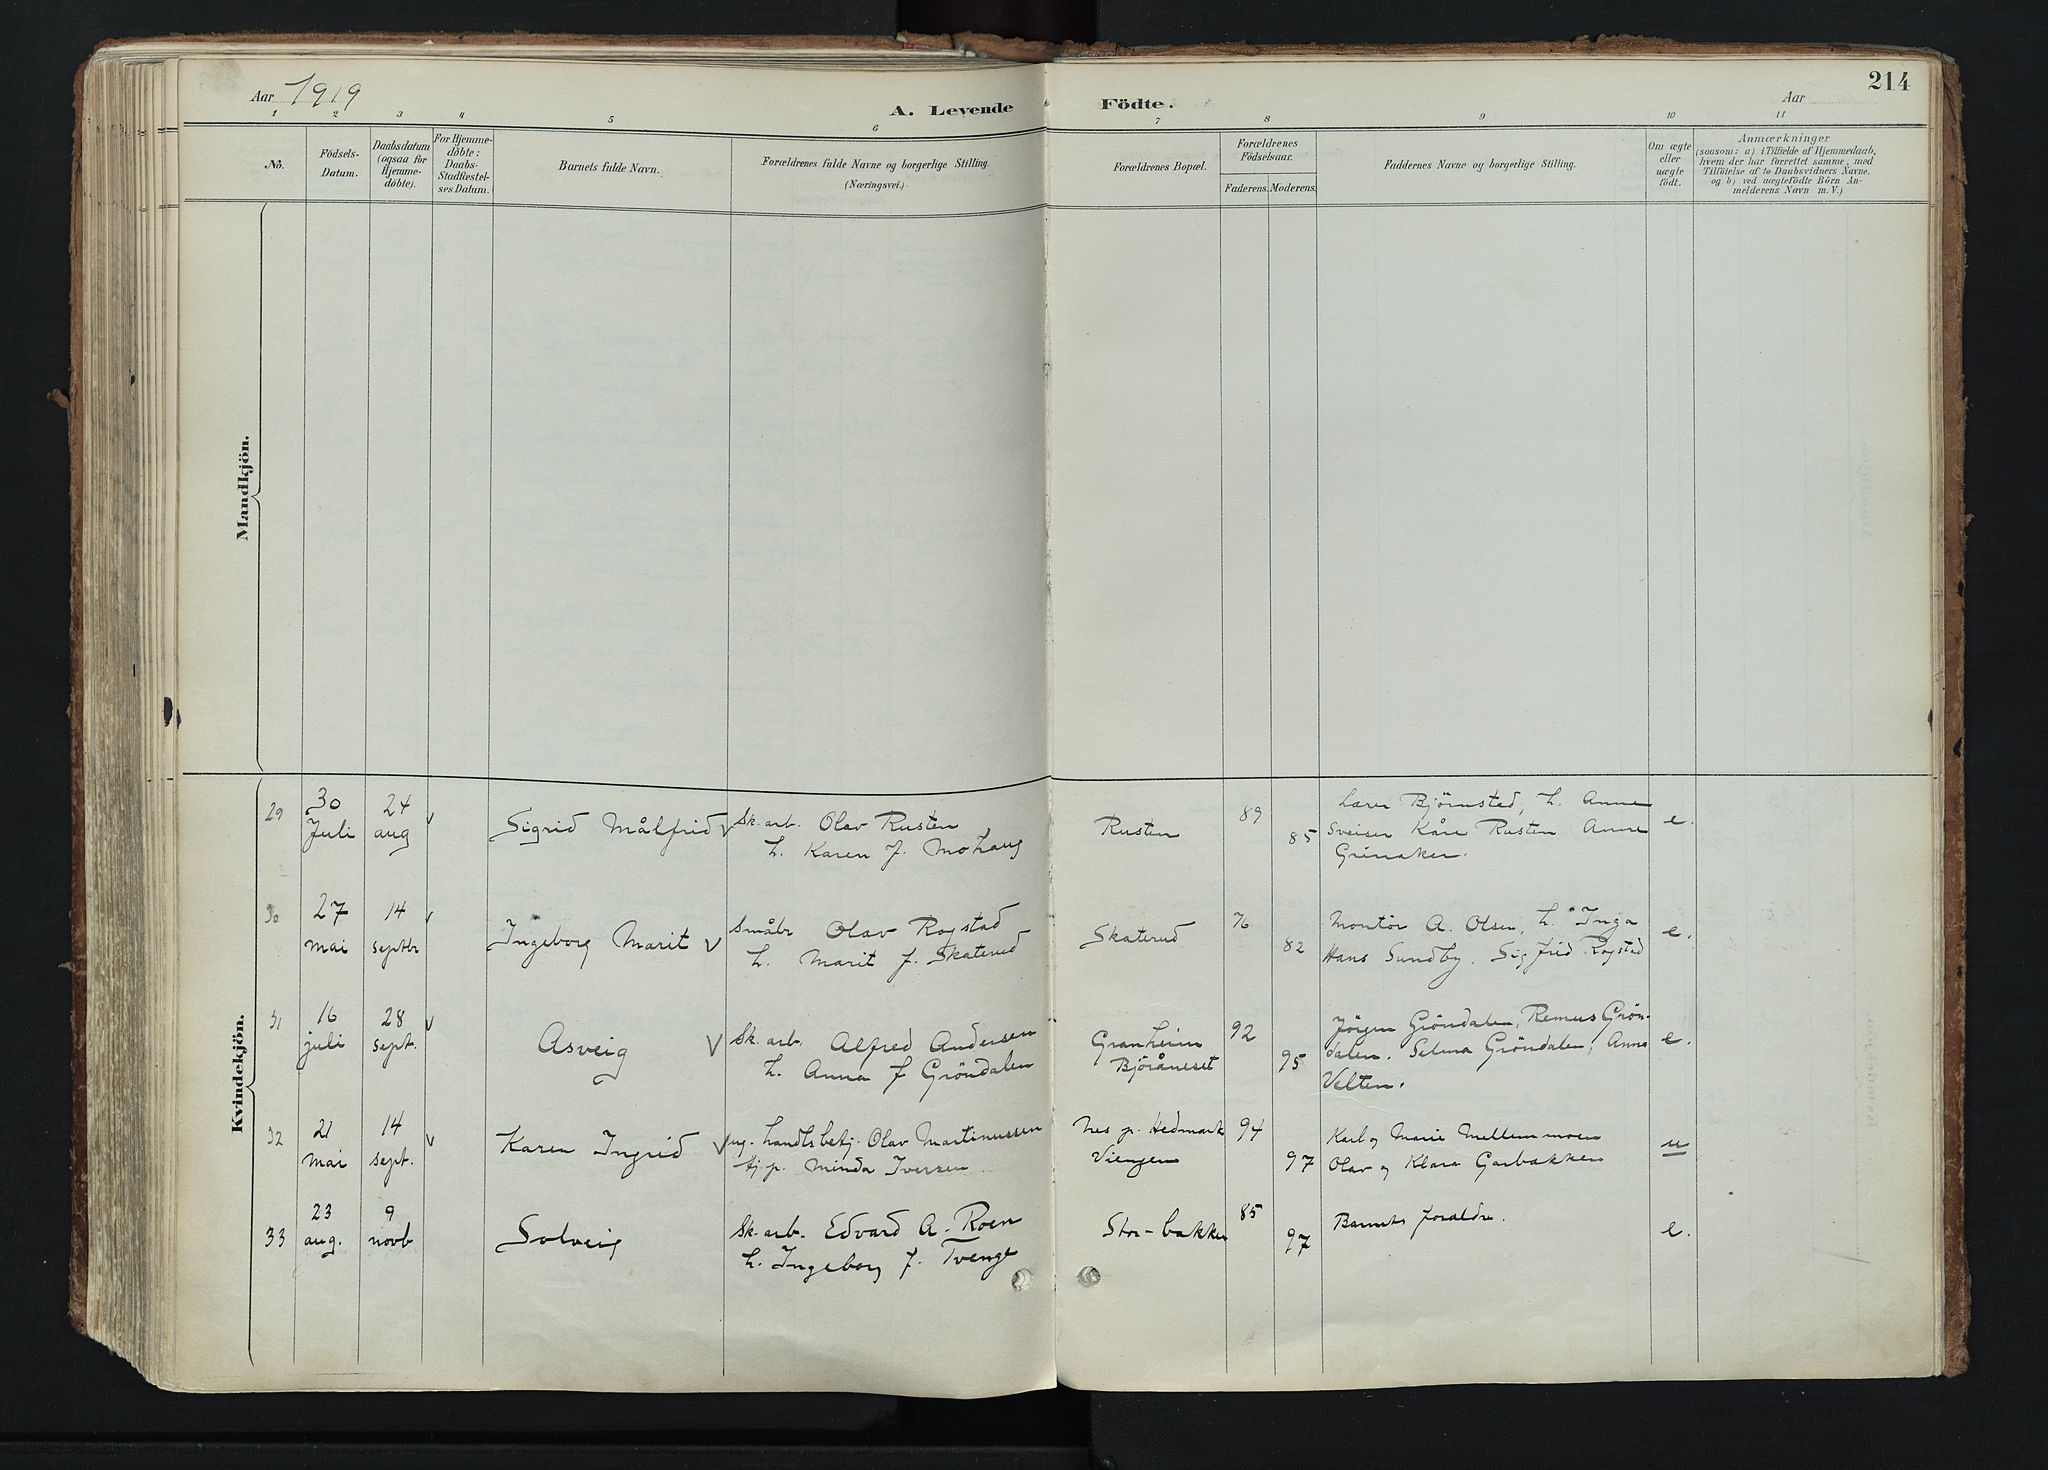 214
Aar 1919
A. Levende Födte.
Aar
1 2 3 4 5 6 7 8 9 10 11
No.
Födsels-
Datum.
Daabsdatum
(ogsaa for
Hjemme-
döbte).
For Hjemme-
döbte:
Daabs-
Stadfæstel-
ses Datum.
Barnets fulde Navn.
Forældrenes fulde Navne og borgerlige Stilling.
(Næringsvei.)
Forældrenes Bopæl.
Forældrenes
Födselsaar.
Faderens. Moderens.
Faddernes Navne og borgerlige Stilling.
Om ægte
eller
uægte
födt.
Anmærkninger
(saasom: a) i Tilfælde af Hjemmedaab,
hvem der har forrettet samme, med
Tilföielse af to Daabsvidners Navne,
og b) ved uægtefödte Börn An-
melderens Navn m. V.)
Mandkjön.
Kvindekjön.
29
30
Juli
24
aug
Sigrid Målfrid
Sk. arb. Olav Rusten
h. Karen f. Mohaug
Rusten
89
85
Lærer Bjørnstad, h. Anne
Sveiser Kåre Rusten Anne
Grinaker.
e.
30
27
mai
14
septbr
Ingeborg Marit
Småbr Olav Rogstad
h. Marit f. Skaterud
Skaterud
76
82
Montör A. Olsen, h. Inga
Hans Sundby, Sigfrid Rogstad
e.
31
16
juli
28
sept.
Asveig
Sk. arb. Alfred Andersen
h. Anna f Gröndalen
Granheim
Björåneset
92
95
Jörgen Gröndalen, Remus Grön-
dalen. Selma Gröndalen, Anna
Velten.
e.
32
21
mai
14
sept.
Karen Ingrid
ug. handlsbetj. Olav Martinussen
tj.p. Minda Iversen
Nes p. Hedmark
Viengen
94
97
Karl og Marie Mellemmoen
Olav og Klara Garbakken
u
33
23
aug.
9
novb
Solveig
Sk. arb. Edvard A. Roen
h. Ingeborg f. Tvenge
Stor-bakken
85
97
Barnets foraldre.
e.